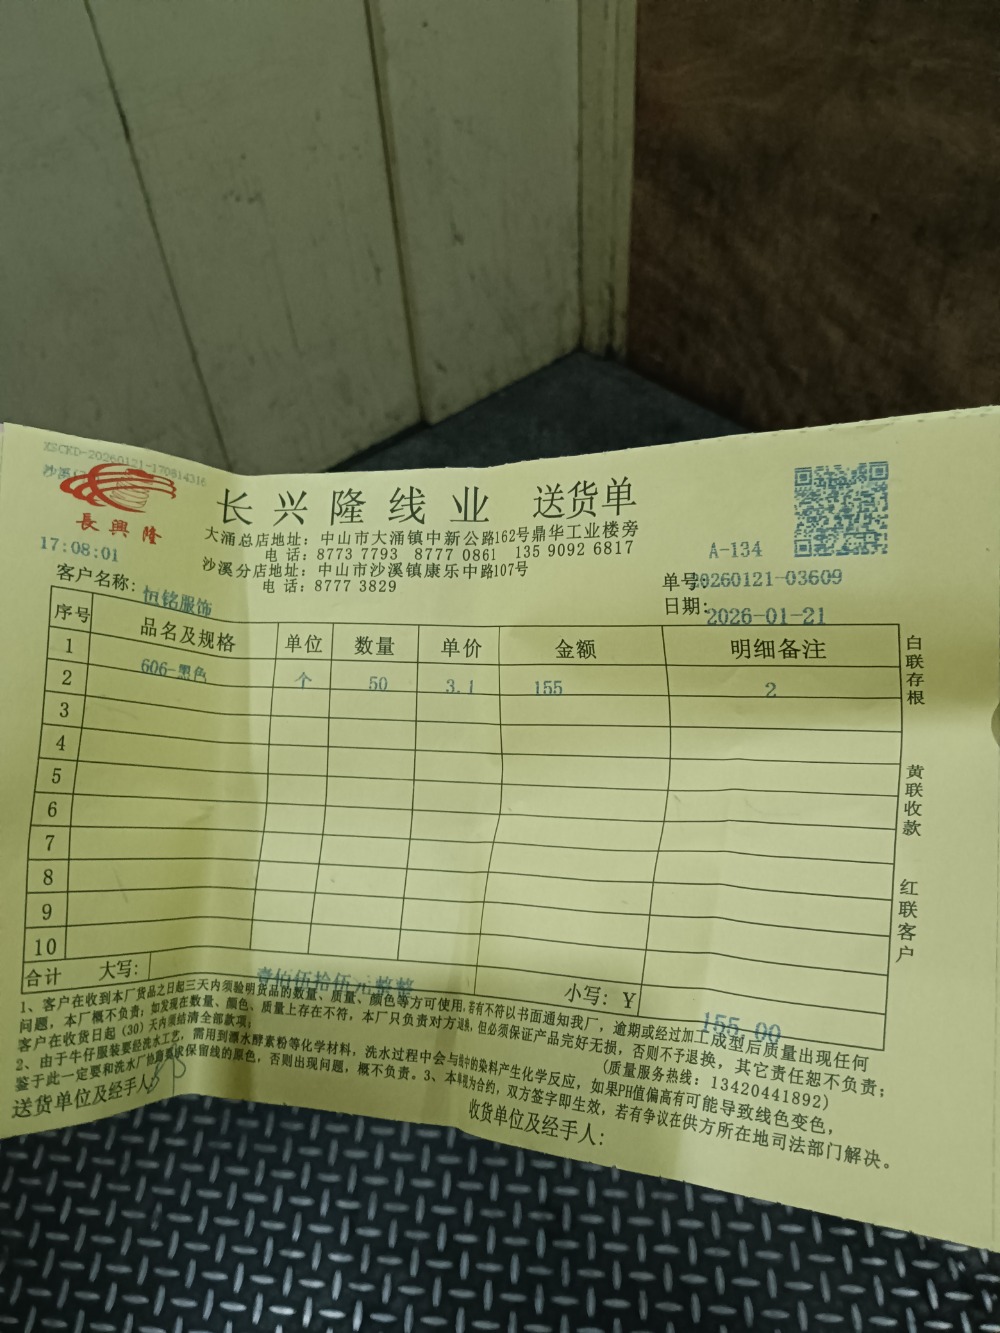 XSCKD-20260121-170814316
沙溪
長興隆
17:08:01
长兴隆线业 送货单
大涌总店地址：中山市大涌镇中新公路162号鼎华工业楼旁
电话：8773 7793 8777 0861 135 9092 6817
沙溪分店地址：中山市沙溪镇康乐中路107号
电话：8777 3829
A-134
单号：20260121-03609
日期：2026-01-21
客户名称：恒铭服饰
序号 品名及规格 单位 数量 单价 金额 明细备注
1 606-黑色 个 50 3.1 155 2
2
3
4
5
6
7
8
9
10
合计 大写：壹佰伍拾伍元整整 小写：￥155.00
1、客户在收到本厂货品之日起三天内须验明货品的数量、质量、颜色等方可使用，若有不符以书面通知我厂，逾期或经过加工成型后质量出现任何
问题，本厂概不负责；如发现在数量、颜色、质量上存在不符，本厂只负责对方退换，但必须保证产品完好无损，否则不予退换，其它责任恕不负责；
客户在收货日起（30）天内须结清全部款项； （质量服务热线：13420441892）
2、由于牛仔服装要经洗水工艺，需用到漂水酵素粉等化学材料，洗水过程中会与线中的染料产生化学反应，如果PH值偏高有可能导致线色变色，
鉴于此一定要和洗水厂协商要求保留线的原色，否则出现问题，概不负责。3、本单视为合约，双方签字即生效，若有争议在供方所在地司法部门解决。
送货单位及经手人：
收货单位及经手人：
白联存根
黄联收款
红联客户